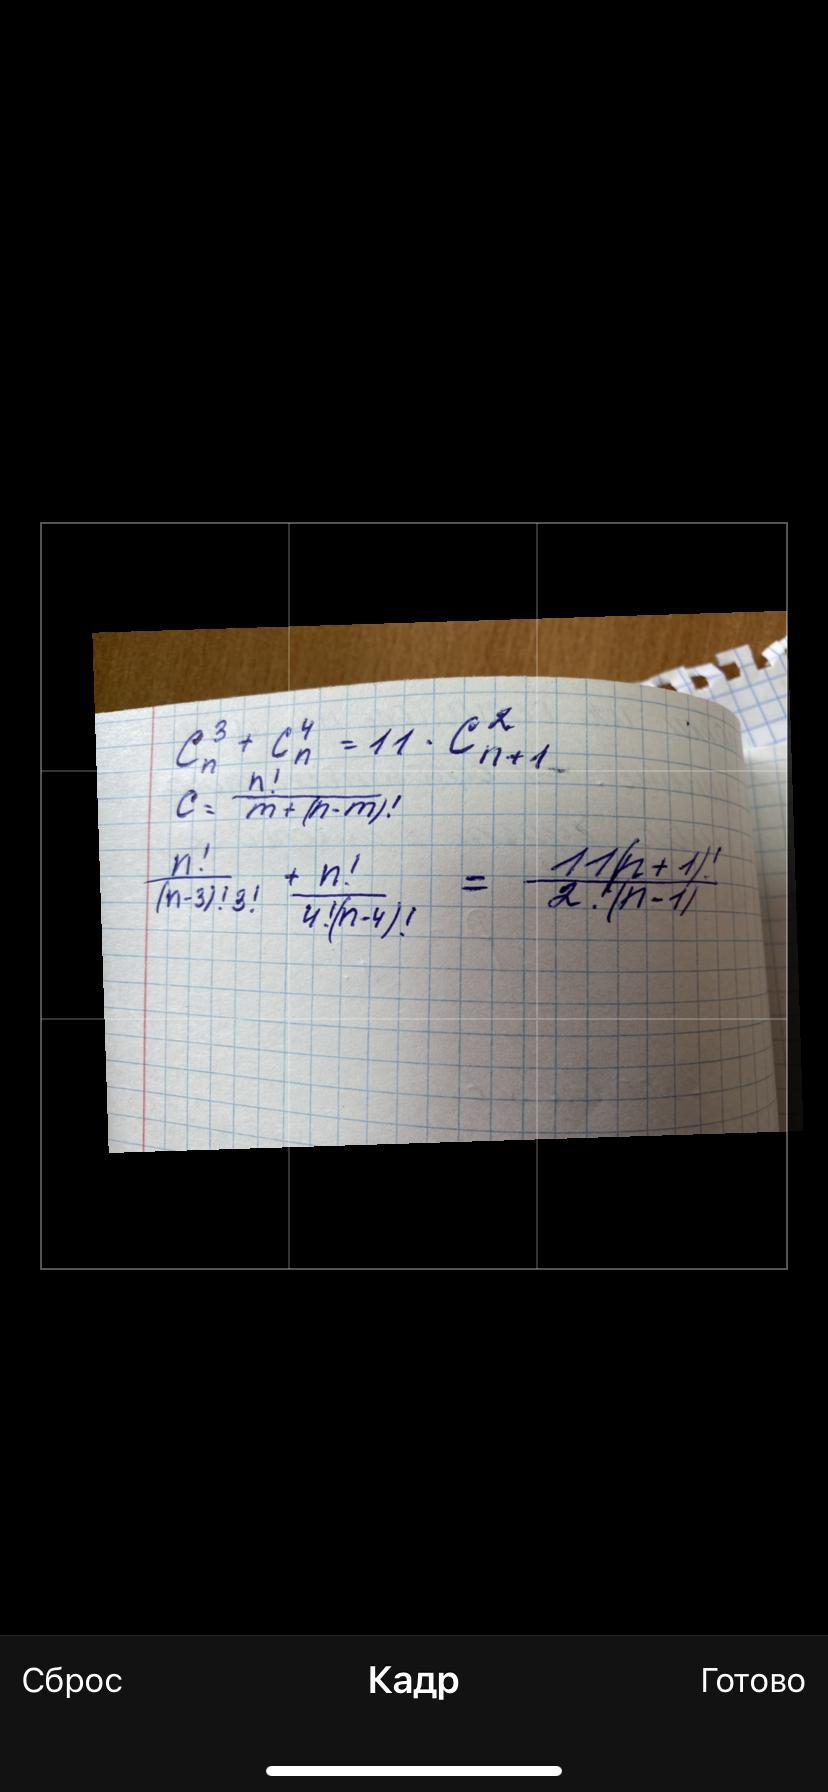 C_n^3 + C_n^4 = 11 · C_{n+1}^2
C = n! / m + (n-m)!
n! / (n-3)! 3! + n! / 4!(n-4)! = 11(n+1)! / 2!(n-1)
Сброс Кадр Готово